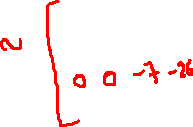 2 [ 0 0 -7 -26